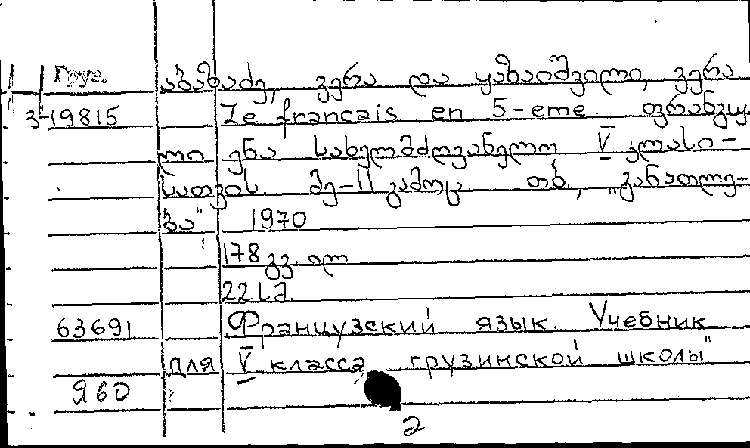 Груз.
აბაზაძე, ვერა და ყაზაიშვილი, ვერა
3-19815 Le francais en 5-eme. ფრანგუ
ლი ენა სახელმძღვანელო V კლასი-
სათვის. მე-11 გამოც. თბ., „განათლე-
ბა" 1970
178 გვ. ილ
22 სმ.
63691 Французский язык. Учебник
для V класса грузинской школы"
Я60